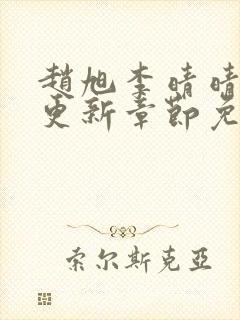 趙旭李晴晴
更新章節免
索尔斯克亞